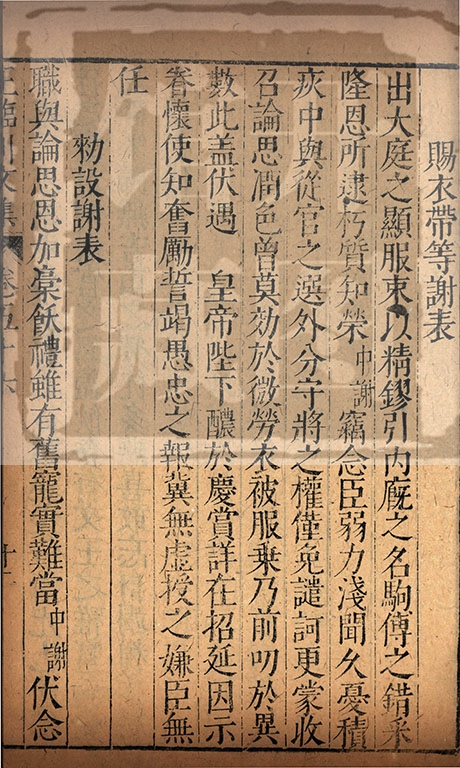 賜衣帶等謝表
出大庭之顯服束以精鏐引內廐之名駒傅之錯采
隆恩所逮朽質知榮中謝竊念臣弱力淺聞久憂積
疢中與從官之選外分守將之權僅免譴訶更蒙收
召論思潤色曾莫効於微勞衣被服乗乃前叨於異
數此盖伏遇 皇帝陛下醲於慶賞詳在招延因示
眷懷使知奮勵誓竭愚忠之報冀無虚授之嫌臣無
任
勑設謝表
職與論思恩加槖飫禮雖有舊寵實難當中謝伏念
王臨川文集 卷五十六 十一